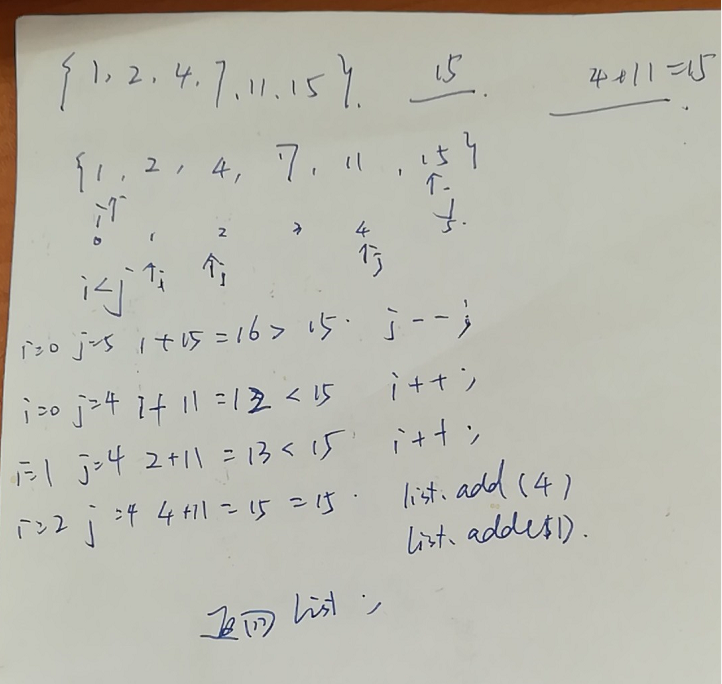 {1, 2, 4, 7, 11, 15}. 15. 4+11=15.
{1, 2, 4, 7, 11, 15}
i↑ ↑
0 1 2 3 4 5.
i<j ↑i ↑j ↑j
i=0 j=5 1+15=16>15. j--;
i=0 j=4 1+11=12<15 i++;
i=1 j=4 2+11=13<15 i++;
i=2 j=4 4+11=15=15. list.add(4)
list.add(11).
返回 list;